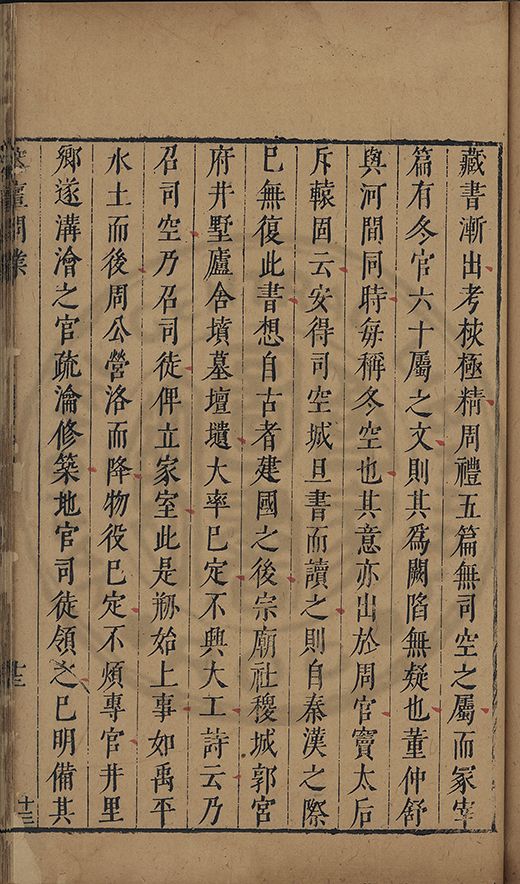 藏書漸出考校極精周禮五篇無司空之屬而冢宰
篇有冬官六十屬之文則其爲闕陷無疑也董仲舒
與河間同時每稱冬空也其意亦出於周官竇太后
斥轅固云安得司空城旦書而讀之則自秦漢之際
已無復此書想自古者建國之後宗廟社稷城郭宮
府井墅廬舍墳墓壇壝大率已定不興大工詩云乃
召司空乃召司徒俾立家室此是剏始上事如禹平
水土而後周公營洛而降物役已定不煩專官井里
鄉遂溝澮之官疏瀹修築地官司徒領之已明備其
榕壇問業
十三